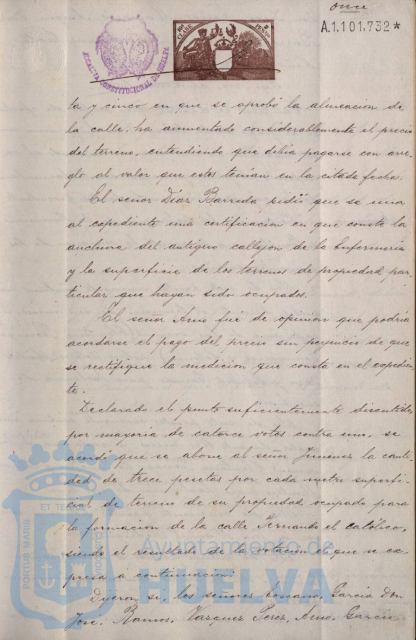 once
A.1.101.732*
ALCALDIA CONSTITUCIONAL DE HUELVA
ta y cinco en que se aprobó la alineacion de
la calle, ha aumentado considerablemente el precio
del terreno, entendiendo que debia pagarse con arre-
glo al valor que estos tenian en la citada fecha.
El señor Diaz Barreda pidió que se una
al expediente una certificacion en que conste la
anchura del antiguo callejon de la Enfermeria
y la superficie de los terrenos de propiedad par-
ticular que hayan sido ocupados.
El señor Amo fué de opinion que podria
acordarse el pago del precio sin perjuicio de que
se rectifique la medicion que consta en el expedien-
te.
Declarado el punto suficientemente discutido,
por mayoria de catorce votos contra uno, se
acordó que se abone al señor Jimenez la canti-
dad de trece pesetas por cada metro superfi-
cial de terreno de su propiedad ocupado para
la formacion de la calle Fernando el Católico,
siendo el resultado de la votacion el que se ex-
presa a continuacion:
Dijeron si, los señores García Don
José, Ramos, Vazquez Perez, Amo, Garcia
PORTUS MARIS
ET TERRAE
Ayuntamiento de
HUELVA